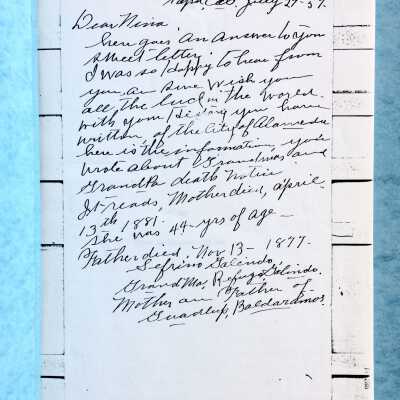 Napa, Cal. July 29-57.
Dear Nina
here goes an answer to your
sweet letter.
I was so happy to hear from
you, an sure wish you
all the luck in the world.
with your history you have
written, of the City of Alameda
here is the information, you
wrote about Grandmas and
Grandpa death notice
It reads, Mother died, april.
13th 1881.
She was 44-yrs of age—
Father died, Nov 13- 1877.
Sefrino Galindo,
GrandMa, Refugo Galindo.
Mother an Father of
Guadlup, Baldaramos.